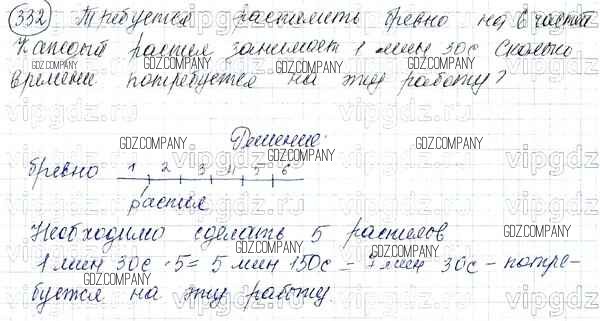 332 Требуется распилить бревно на 6 частей
Каждый распил занимает 1 мин 30с Сколько
времени потребуется на эту работу?
Решение:
бревно 1 2 3 4 5 6
распил
Необходимо сделать 5 распилов
1 мин 30с · 5 = 5 мин 150с = 7 мин 30с - потре-
буется на эту работу.